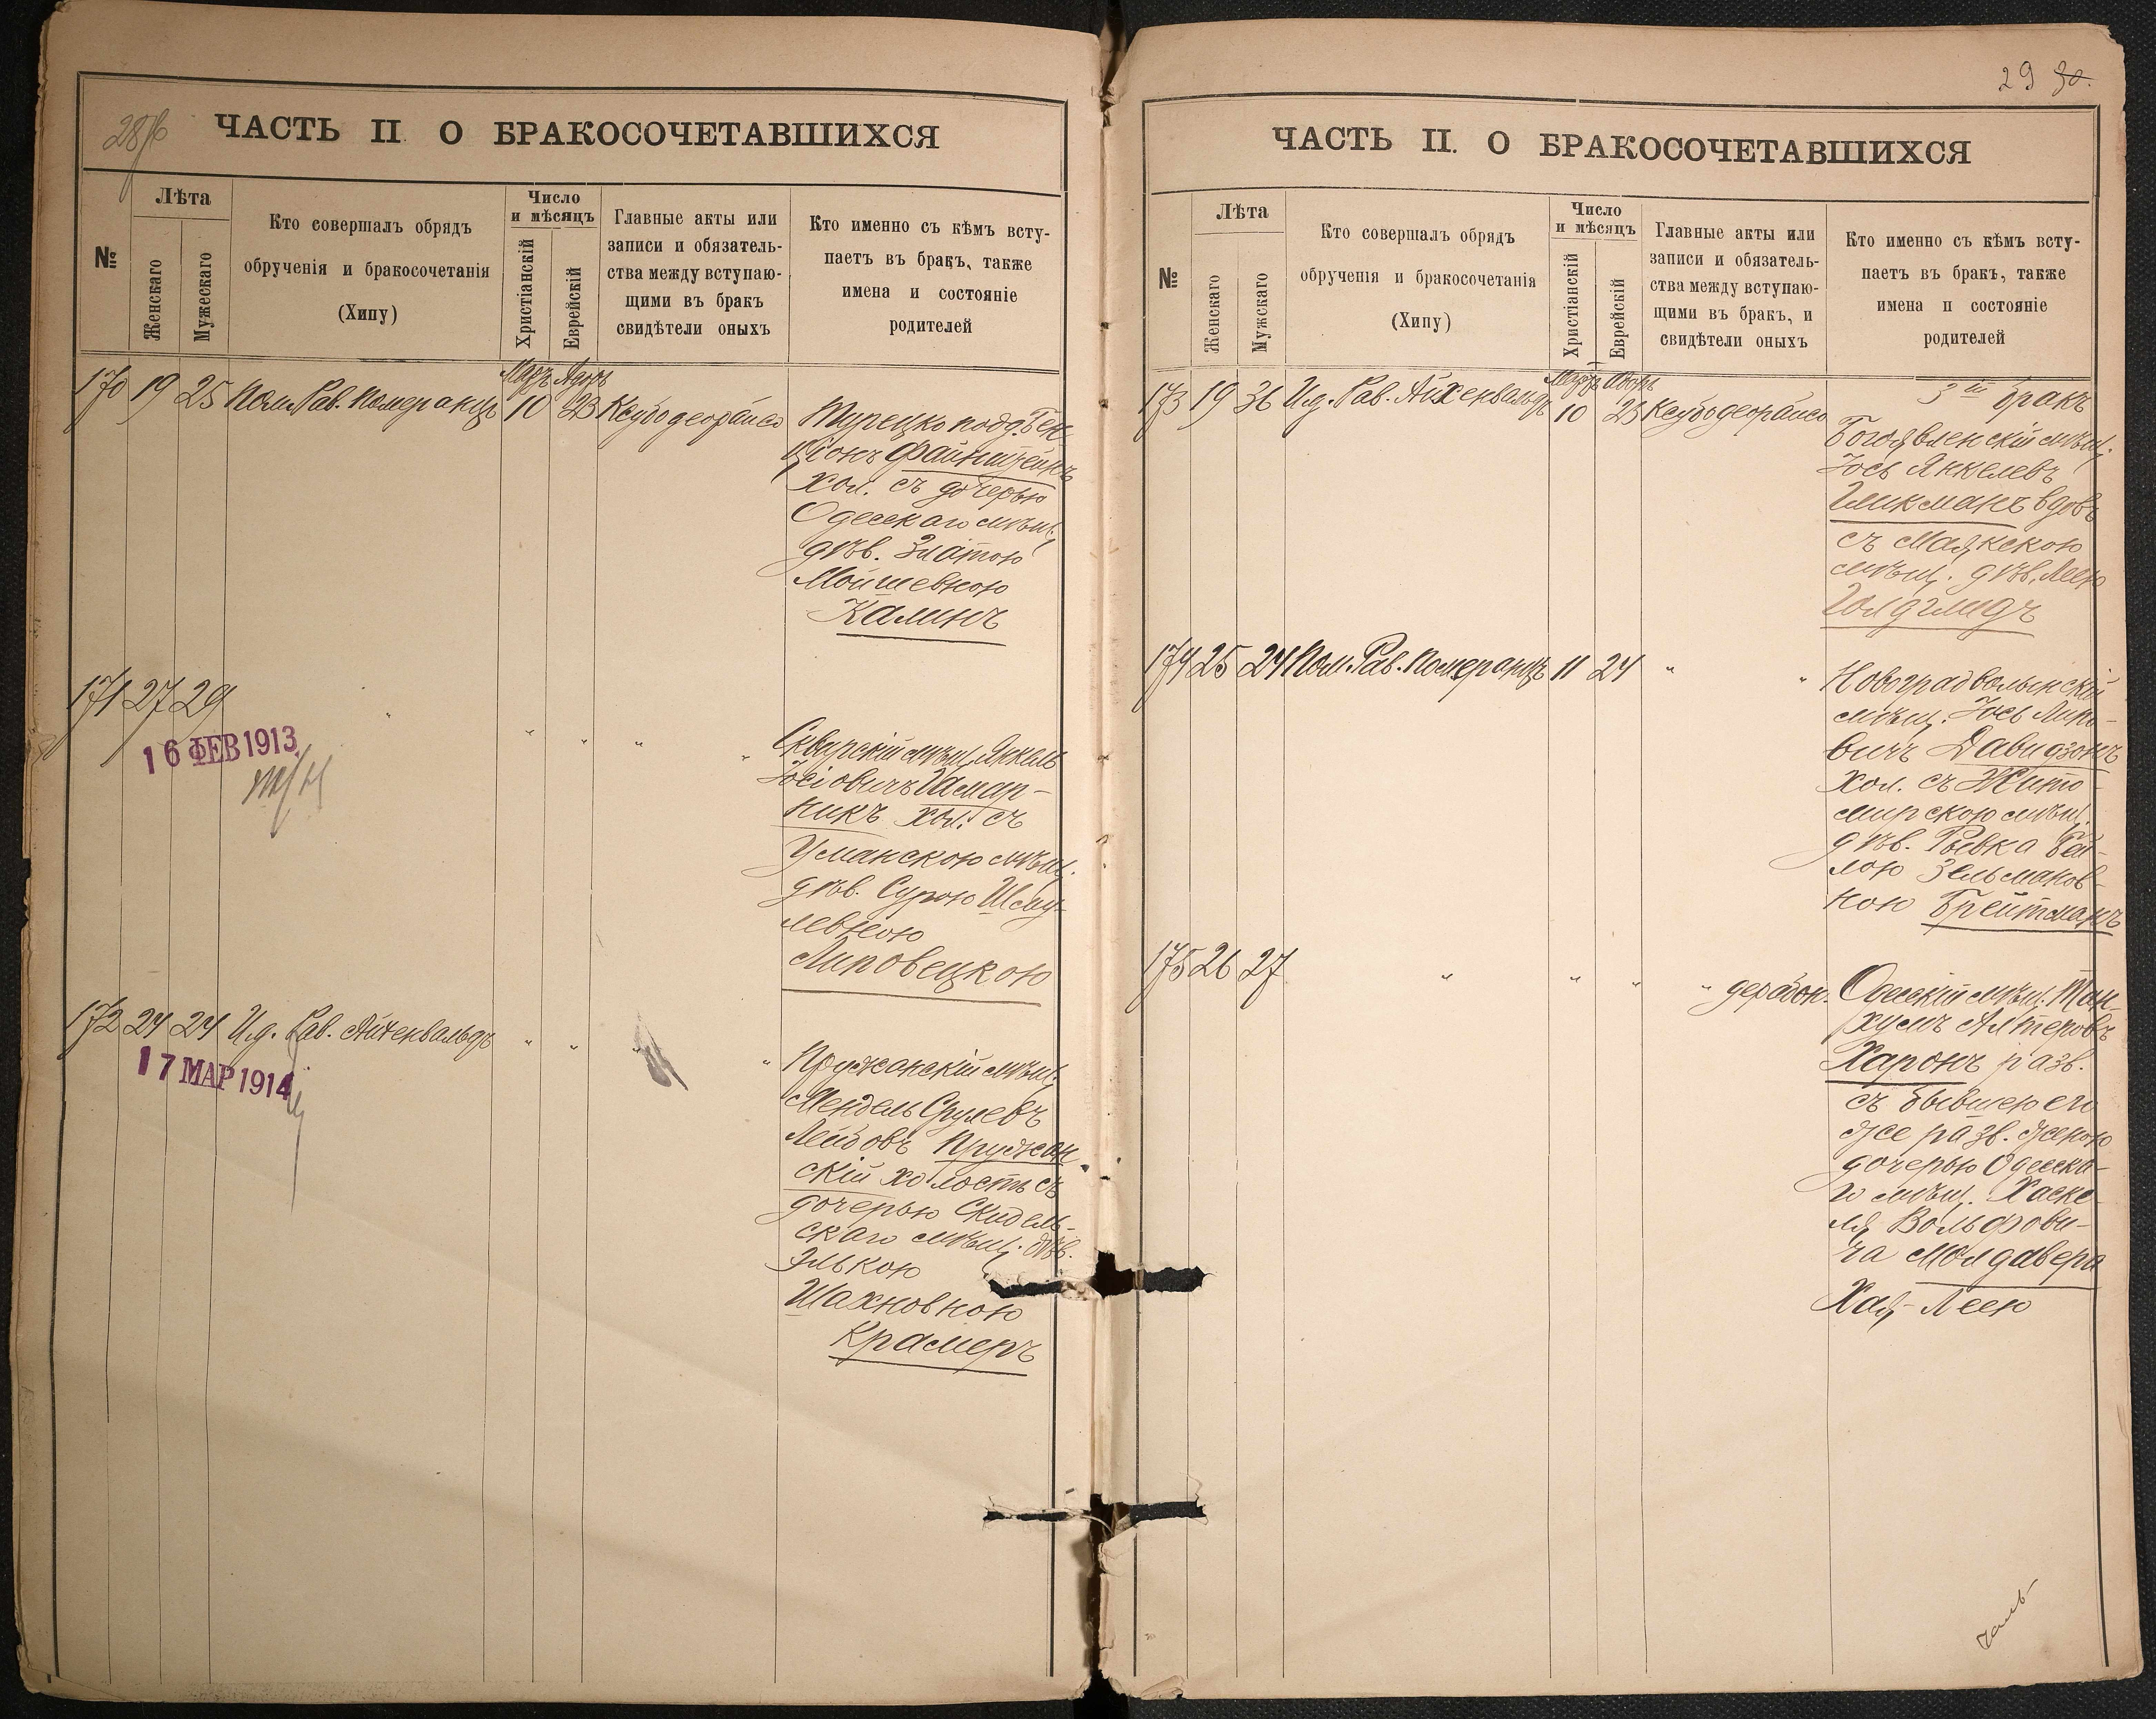 28/б
ЧАСТЬ II О БРАКОСОЧЕТАВШИХСЯ
№
Лѣта
Женскаго
Мужескаго
Кто совершалъ обрядъ
обрученія и бракосочетанія
(Хипу)
Число
и мѣсяцъ
Христіанскій
Еврейскій
Главные акты или
записи и обязатель-
ства между вступаю-
щими въ бракъ
свидѣтели оныхъ
Кто именно съ кѣмъ всту-
паетъ въ бракъ, также
имена и состояніе
родителей
Мар. Адоръ
170 19 25 Пом. Рав. Померанцъ 10 23 Ксубо деорайсо
Турецко подд. Бен-
Ціонъ Файнштейнъ
хол. съ дочерью
Одесскаго мѣщ.
дѣв. Златою
Мойшевною
Калинъ
171 27 29 " " " " "
16 ФЕВ 1913
Сквирскій мѣщ. Янкель
Іосіовичъ Шмар-
никъ хол. съ
Уманскою мѣщ.
дѣв. Сурою Шму-
левною
Липовецкою
172 24 24 И.д. Рав. Айхенвальдъ " " " "
17 МАР 1914
Пружанскій мѣщ.
Мендель Срулевъ
Лейбовъ Пружан
скій холостъ съ
дочерью Скидель-
скаго мѣщ. дѣв.
Элькою
Шахновною
Крамеръ
29 30.
ЧАСТЬ II. О БРАКОСОЧЕТАВШИХСЯ
№
Лѣта
Женскаго
Мужскаго
Кто совершалъ обрядъ
обрученія и бракосочетанія
(Хипу)
Число
и мѣсяцъ
Христіанскій
Еврейскій
Главные акты или
записи и обязатель-
ства между вступаю-
щими въ бракъ, и
свидѣтели оныхъ
Кто именно съ кѣмъ всту-
паетъ въ бракъ, также
имена и состояніе
родителей
Мар. Адоръ
173 19 36 И.д. Рав. Айхенвальдъ 10 23 Ксубо деорайсо
3ій бракъ
Богоявленскій мѣщ.
Іось Янкелевъ
Гликманъ вдовъ
съ Маякскою
мѣщ. дѣв. Леею
Голдглидъ
174 25 24 Пом. Рав. Померанцъ 11 24 " "
Новоградволынскій
мѣщ. Іось Липо-
вичъ Давидзонъ
хол. съ Жито-
мирскою мѣщ.
дѣв. Ривка Бей-
лою Зельманов-
ною Брейтманъ
175 26 27 " " " " дерабон.
Одесскій мѣщ. Тан-
хумъ Алтеровъ
Харонъ разв.
съ бывшею его
же разв. женою
дочерью Одесска-
го мѣщ. Хаске-
ля Вольфови-
ча Молдавера
Хая-Леею